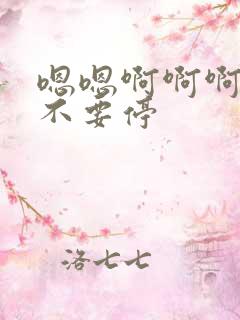 嗯嗯啊啊啊
不要停
洛七七